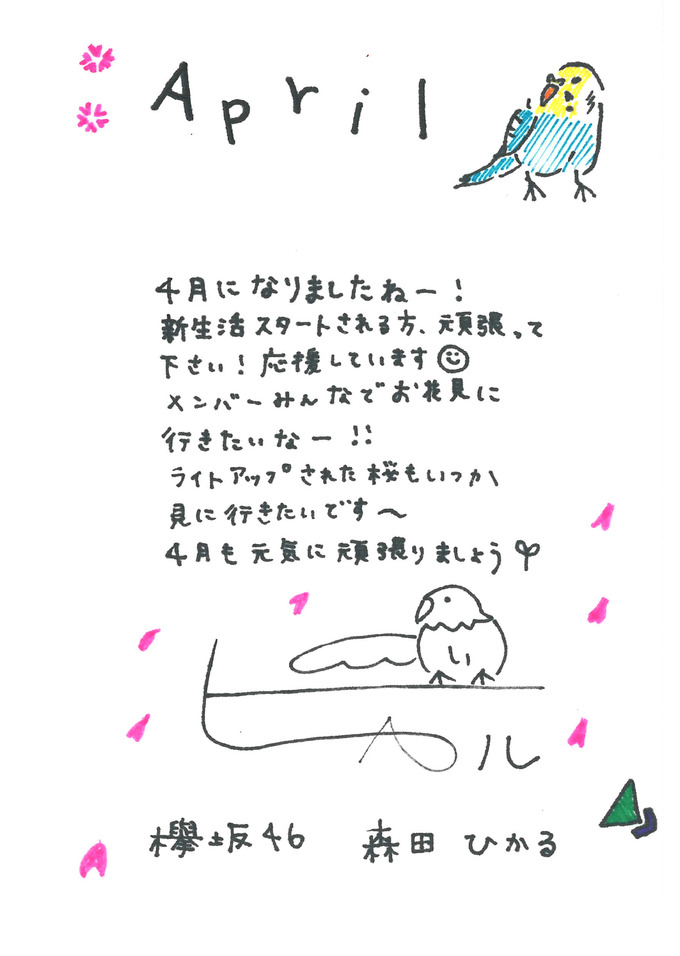 April
4月になりましたねー!
新生活スタートされる方、頑張って
下さい!応援しています
メンバーみんなでお花見に
行きたいなー!!
ライトアップされた桜もいつか
見に行きたいです〜
4月も元気に頑張りましょう
い
ル
欅坂46 森田ひかる